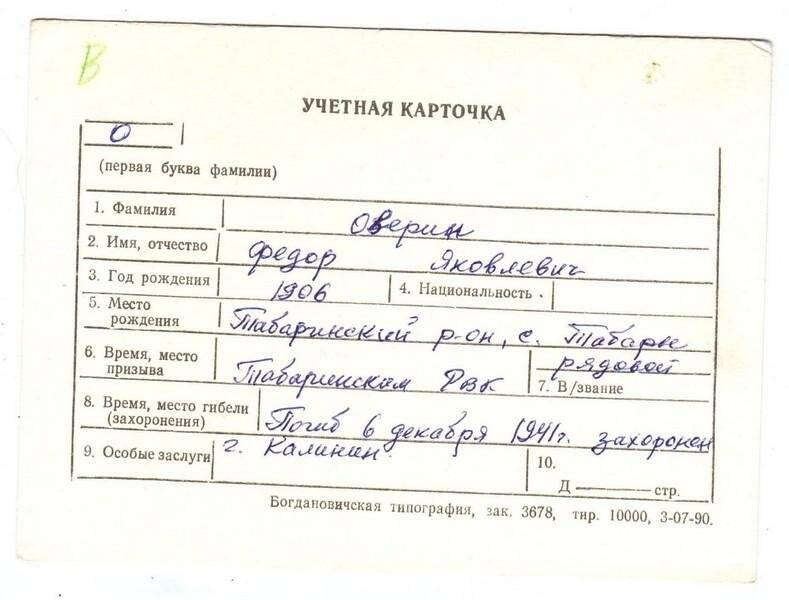 В
УЧЕТНАЯ КАРТОЧКА
О
(первая буква фамилии)
1. Фамилия Оверин
2. Имя, отчество Федор Яковлевич
3. Год рождения 1906 4. Национальность
5. Место
рождения Табаринский р-он, с. Табары
6. Время, место
призыва Табаринским РВК
рядовой
7. В/звание
8. Время, место гибели
(захоронения) Погиб 6 декабря 1941г. захоронен
9. Особые заслуги г. Калинин.
10.
Д ——— стр.
Богдановичская типография, зак. 3678, тир. 10000, 3-07-90.